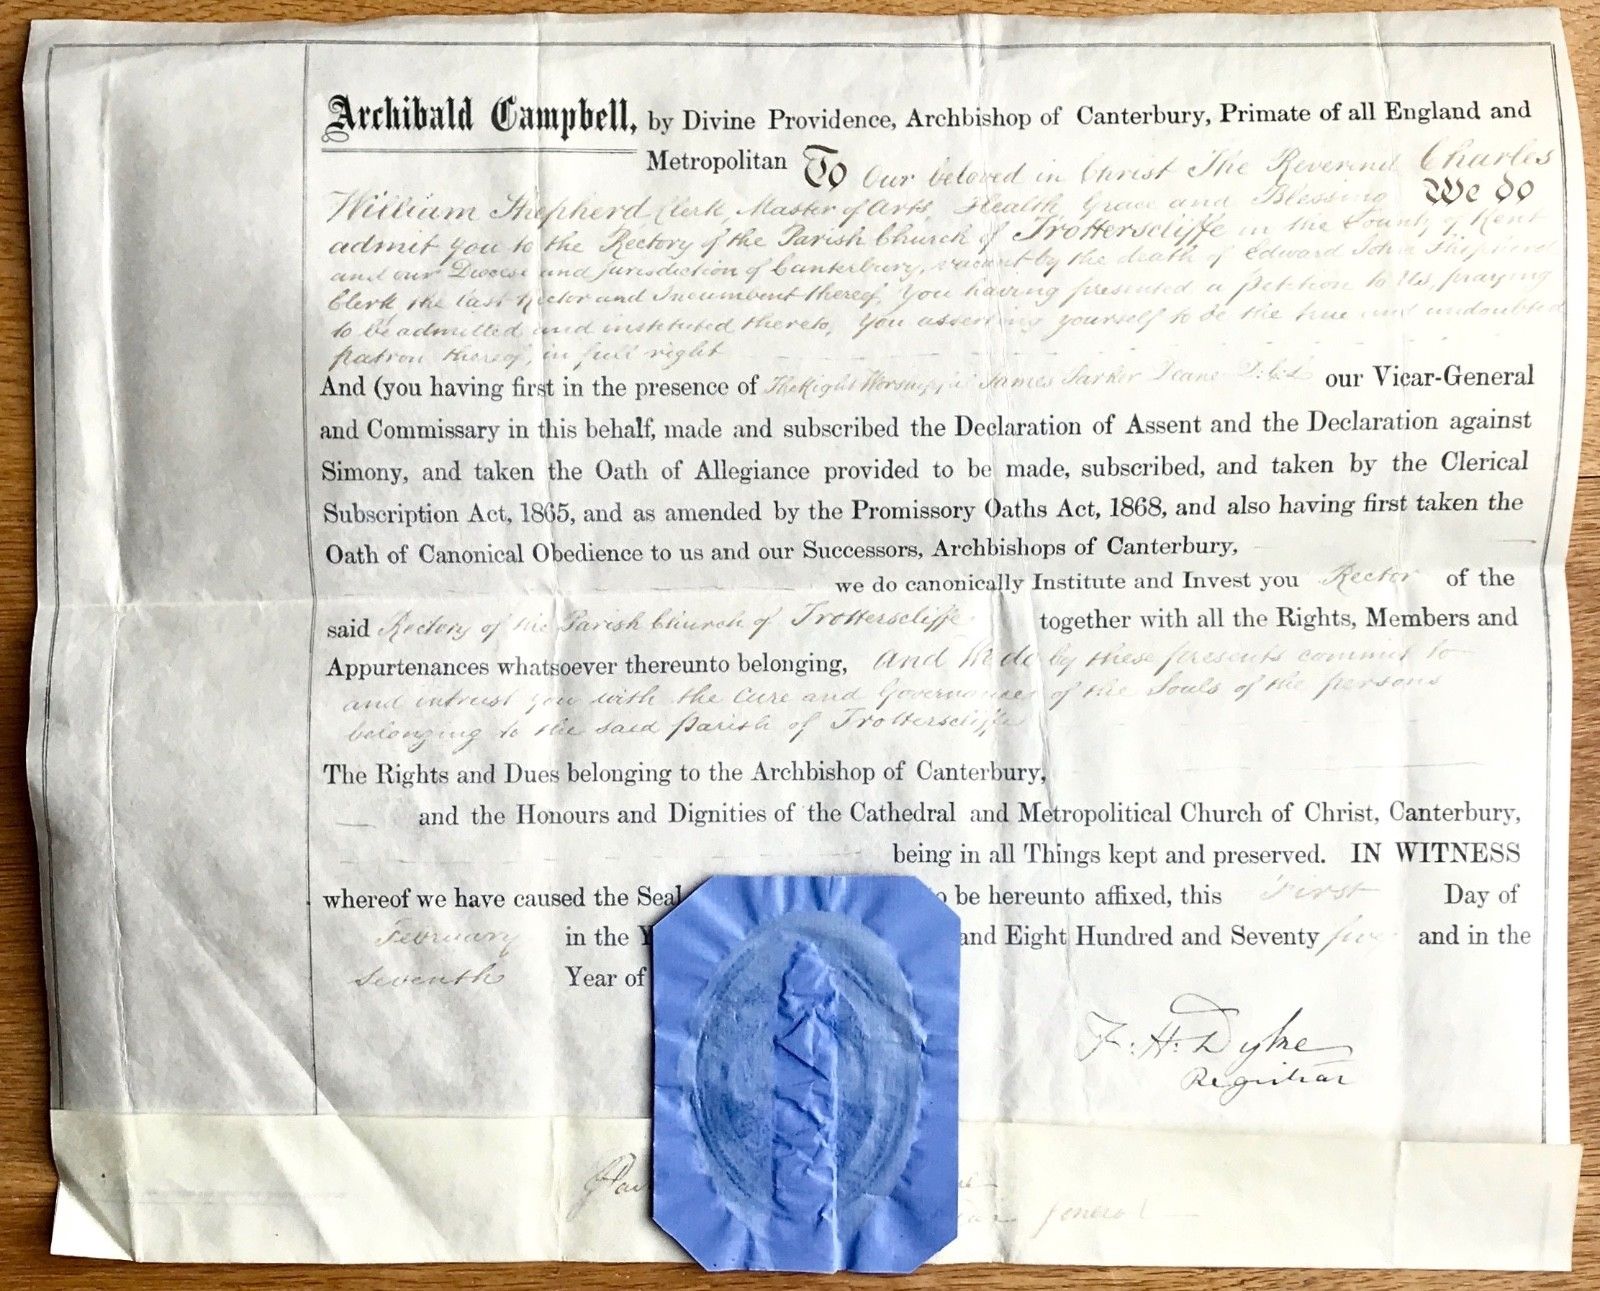 Archibald Campbell, by Divine Providence, Archbishop of Canterbury, Primate of all England and
Metropolitan To Our beloved in Christ The Reverend Charles
William Shepherd Clerk, Master of Arts, Health Grace and Blessing We do
admit you to the Rectory of the Parish Church of Trotterscliffe in the County of Kent
and our Diocese and jurisdiction of Canterbury, vacant by the death of Edward John Shepherd
Clerk the last Rector and Incumbent thereof, You having presented a Petition to Us, praying
to be admitted and instituted thereto, You asserting yourself to be the true and undoubted
patron thereof, in full right
And (you having first in the presence of The Right Worshipful James Parker Deane D.C.L our Vicar-General
and Commissary in this behalf, made and subscribed the Declaration of Assent and the Declaration against
Simony, and taken the Oath of Allegiance provided to be made, subscribed, and taken by the Clerical
Subscription Act, 1865, and as amended by the Promissory Oaths Act, 1868, and also having first taken the
Oath of Canonical Obedience to us and our Successors, Archbishops of Canterbury,
we do canonically Institute and Invest you Rector of the
said Rectory of the Parish Church of Trotterscliffe together with all the Rights, Members and
Appurtenances whatsoever thereunto belonging, And We do by these presents commit to
and intrust you with the Cure and Governance of the Souls of the persons
belonging to the said Parish of Trotterscliffe
The Rights and Dues belonging to the Archbishop of Canterbury,
and the Honours and Dignities of the Cathedral and Metropolitical Church of Christ, Canterbury,
being in all Things kept and preserved. IN WITNESS
whereof we have caused the Seal be hereunto affixed, this First Day of
February in the and Eight Hundred and Seventy five and in the
Seventh Year of
F. H. Dyke
Registrar
General